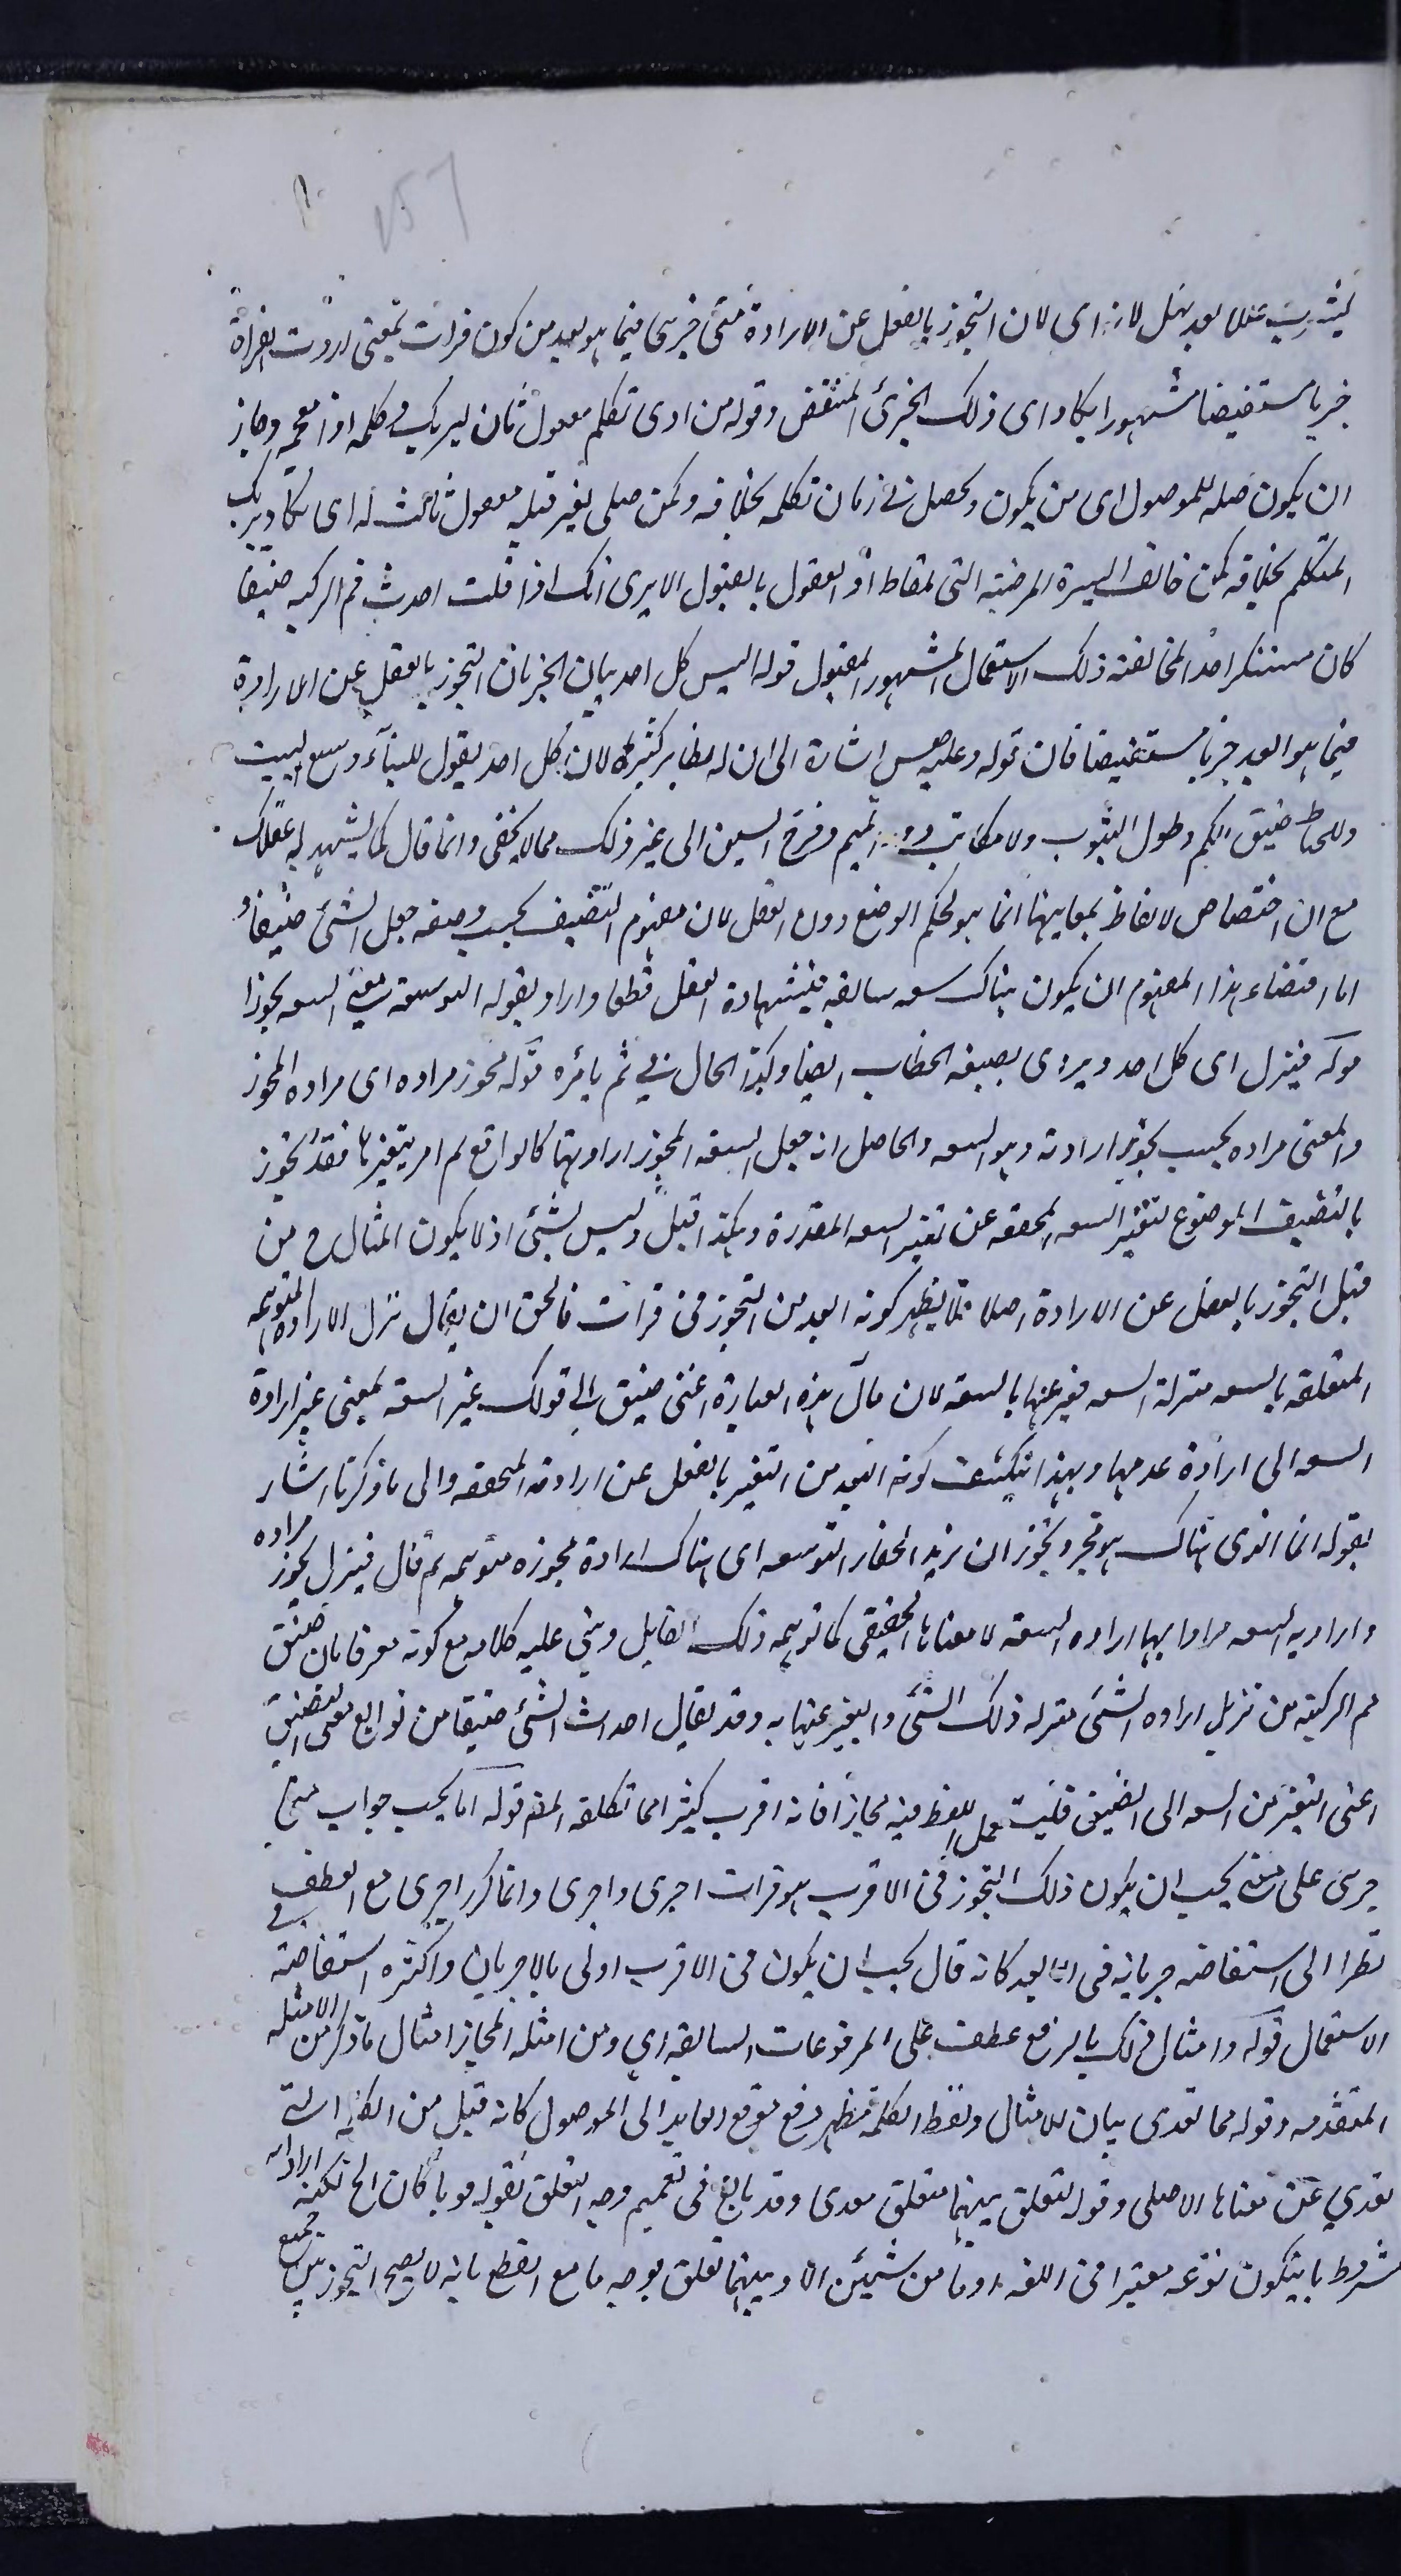 ٢٥٦
لانه اى لان التجوز بالفعل عن الارادة متى جرى فيما هو بعيد من كون قرات بمعنى اردت القراة
جريا مستفيضا مشهورا يكاد اى ذلك الجرى وقوله من ادى تكلم معمول ثان ليريك وكلمه اذا معجمه وجاز
ان يكون صله للموصول اى من يكون ويحصل فى زمان تكلمه بخلافه وكمن صلى لغير قبله معمول ثالث له اى يكاد يريك
المتكلم بخلافه كمن خالف السيرة المرضية التى العقول بالقبول الا يرى انك اذا قلت احدث فم الركيه ضيقا
كان مستنكرا جدا لمخالفته ذلك الاستعمال المشهور المقبول قوله اليس كل احد بيان لجريان التجوز بالفعل عن الارادة
فيما هو ابعد جريا مستفيضا فان قوله وعليه فقس اشارة الى ان له نظاير كثيرة لان كل احد يقول للبنآء وسع البيت
وللخياط ضيق الكم وطول الثوب وللكاتب دور الميم وفرج السين الى غير ذلك مما لا يخفى وانما قال كما يشهد له عقلك
مع ان اختصاص الالفاظ بمعانيها انما هو بحكم الوضع دون العقل لان مفهوم التضييق بحسب وضعه جعل الشئ ضيقا و
اما اقتضاء هذا المفهوم ان يكون هناك سعه سابقه فبشهادة العقل قطعا واراد بقوله التوسعة معنى السعه تجوزا
قوله فينزل اى كل احد ويروى بصيغه الخطاب ايضا وكذا الحال فى ثم يأمره قوله مجوز مراده اى مراده المجوز
والمعنى مراده بحسب تجويز ارادته وهو السعه والحاصل انه جعل السعه المجوز ارادتها كالواقع ثم امر بتغيرها فقد تجوز
بالتضييق الموضوع لتغير السعه المحققه عن تغير السعه المقدرة وهكذا قيل وليس بشئ اذ لا يكون المثال ح من
قبل التجوز بالفعل عن الارادة اصلا فلا يظهر كونه ابعد من التجوز فى قرات فالحق ان يقال نزل الارادة المتوهمه
المتعلقه بالسعه منزلة السعه فعبر عنها بالسعه لان مآل هذه العبارة اعنى ضيق الى قولك غير السعة بمعنى غير ارادة
السعه الى ارادة عدمها وبهذا ينكشف كونه ابعد من التعبير بالفعل عن ارادته المحققه والى ما ذكرنا اشار
بقوله انما الذى هناك هو مجرد تجوز ان يريد الحفار التوسعه اى هناك ارادة مجوزه متوهمه ثم قال فينزل مجوز مراده
واراد به السعه مرادا بها ارادة السعة لا معناها الحقيقى كما توهمه ذلك القايل وبنى عليه كلامه مع كونه معرفا بان ضيق
فم الركيه من تنزيل ارادة الشئ منزله ذلك الشئ والتعبير عنها به وقد يقال احداث الشئ ضيقا من توابع معنى التضييق
اعنى التغير من السعه الى الضيق فليت عمل اللفظ فيه مجازا فانه اقرب كثيرا مما تكلفه المص قوله اما يجب جواب متى
جرى على معنى يجب ان يكون ذلك التجوز فى الاقرب هو قرات اجرى واجرى وانما كرر اجرى مع العطف
نظرا الى استفاضه جريانه فى البعيد كانه قال يجب ان يكون فى الاقرب اولى بالاجريان واكثره استفاضة فى
الاستعمال قوله وامثال ذلك بالرفع عطف على المرفوعات السابقه اى ومن امثله المجاز امثال ما ذكر من الامثله
المتقدمه وقوله مما تعدى بيان للامثال ولفظ الكلمة مظهر وقع موقع العايد الى الموصول كانه قيل من الكلمه التى
تعدى عن معناها الاصلى وقوله لتعلق بينهما متعلق بتعدى وقد بالغ فى تعميم وجه التعلق بقوله بوجه ما كان الخ لكنه اراد انه
مشروط بان يكون نوعه معتبرا فى اللغه اذ ما من شيئين الا وبينهما تعلق بوجه ما مع القطع بانه لا يصح التجوز بين جميع